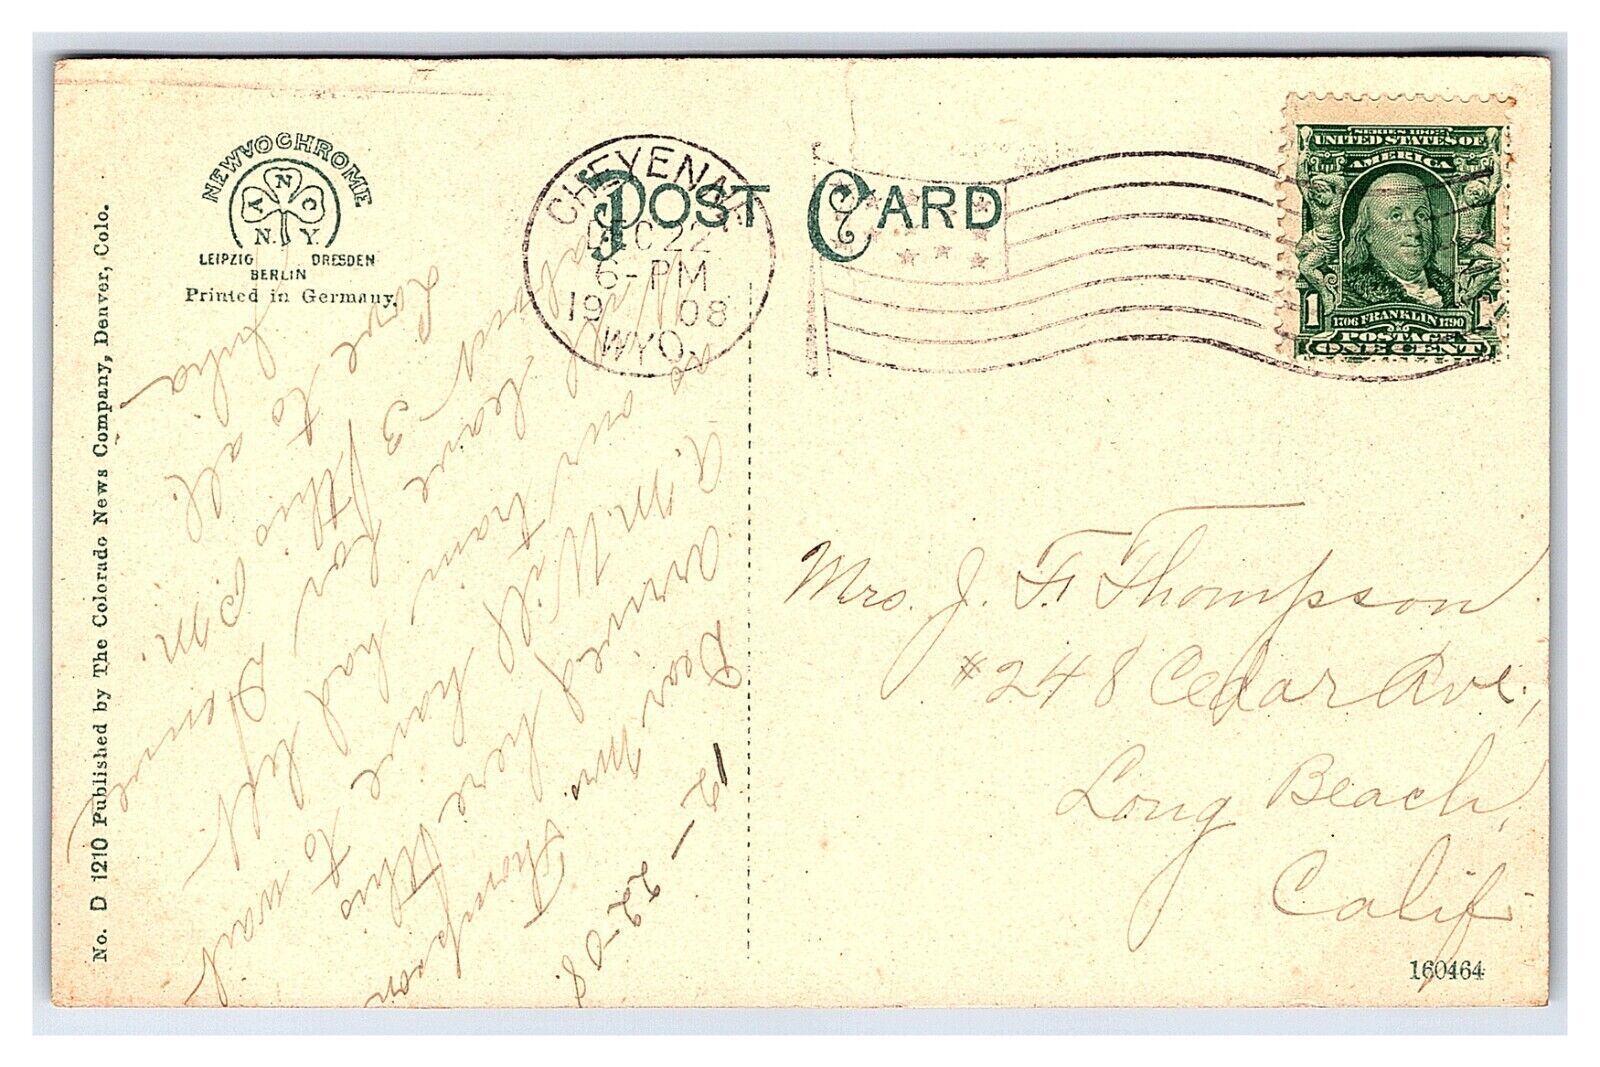 NEWVOCHROME
A N C
N. Y.
LEIPZIG DRESDEN
BERLIN
Printed in Germany.
No. D 1210 Published by The Colorado News Company, Denver, Colo.
POST CARD
CHEYENNE
DEC 22
6-PM
19 08
WYO.
SERIES 1902
UNITED STATES OF
AMERICA
1706 FRANKLIN 1790
1 1
POSTAGE
ONE CENT
12-22-08.
Dear Mrs. Thompson
Arrived here this
A.M. Will have to wait
as our train had left
Will leave for Home
about 3 this P.M.
Love to all.
Julia
Mrs. J. F. Thompson
#248 Cedar Ave.,
Long Beach,
Calif
160464